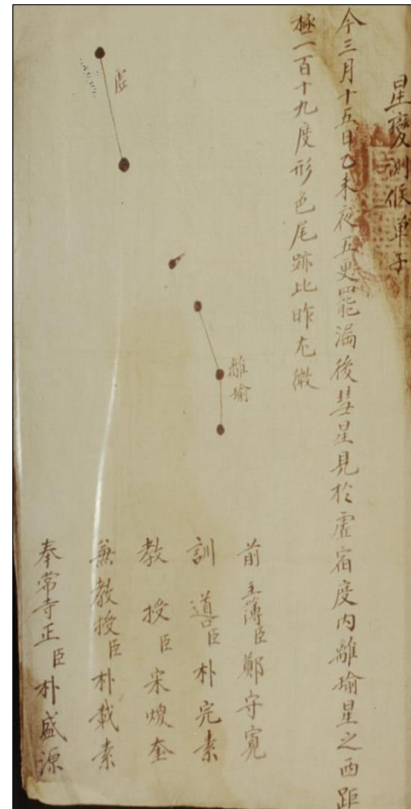 星變測候單子
今三月十五日乙未夜五更罷漏後彗星見於虛宿度內離瑜星之西距
極一百十九度形色尾跡比昨尤微
虛
離瑜
前主簿臣鄭守寬
訓導臣朴完素
教授臣宋煥奎
兼教授臣朴載素
奉常寺正臣朴盛源